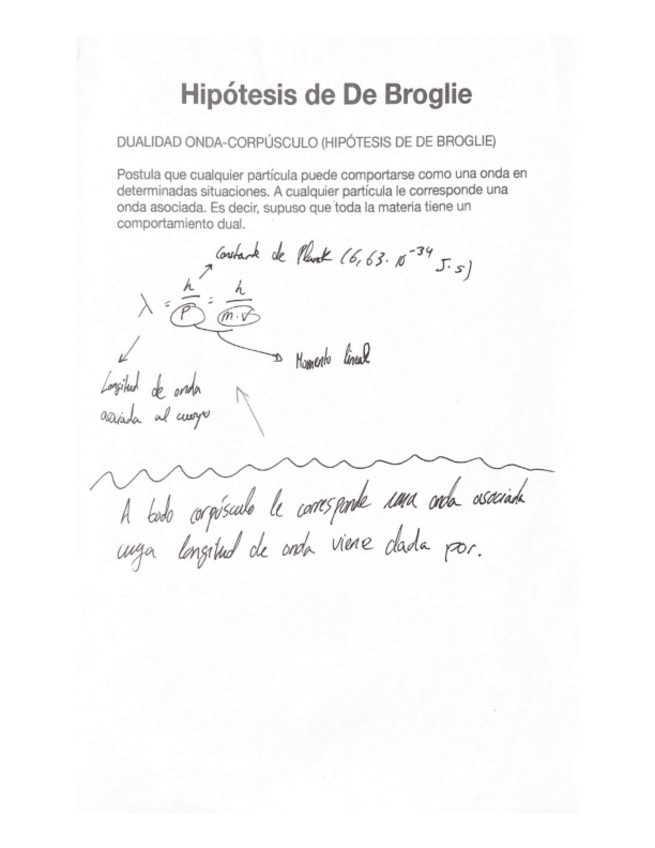 Hipótesis de De Broglie
DUALIDAD ONDA-CORPÚSCULO (HIPÓTESIS DE DE BROGLIE)
Postula que cualquier partícula puede comportarse como una onda en
determinadas situaciones. A cualquier partícula le corresponde una
onda asociada. Es decir, supuso que toda la materia tiene un
comportamiento dual.
Constante de Planck (6,63·10⁻³⁴ J·s)
λ = h/p = h/m·v
Momento lineal
Longitud de onda
asociada al cuerpo
A todo corpúsculo le corresponde una onda asociada
cuya longitud de onda viene dada por.